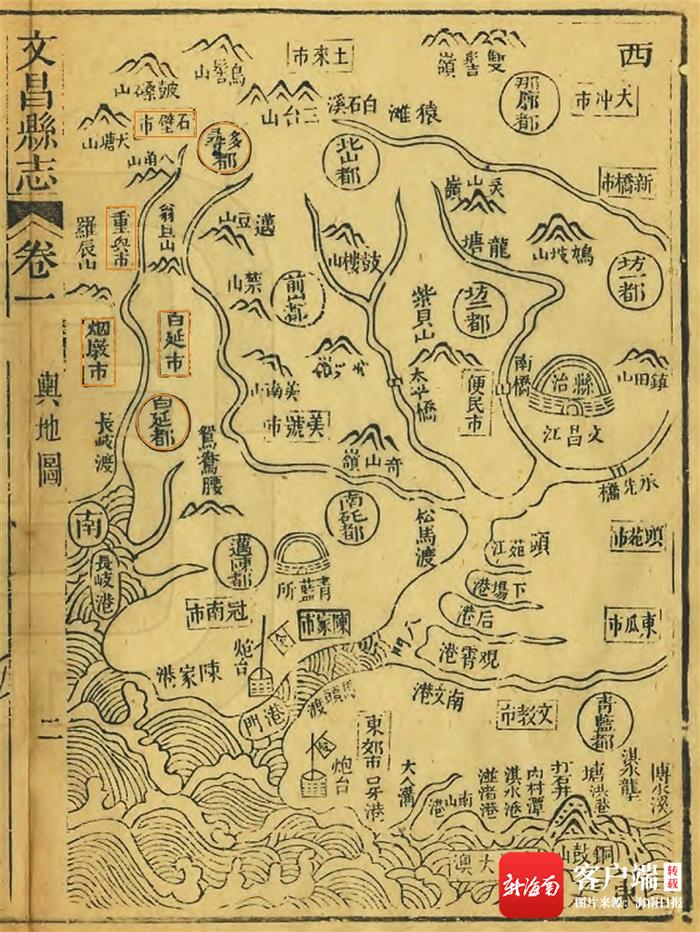 文昌縣志
卷一
輿地圖
二
西
雙髻嶺
土來市
烏髻山
鼓磉山
大冲市
那廓都
猿滩
白石溪
三台山
石壁市
多尋都
八角山
北山都
新橋市
重興市
翁旦山
邁豆山
龍塘
坊一都
羅辰山
禁山
前山都
鼓樓山
紫貝山
坊二都
烟墩市
白延市
南橋
縣治
文昌江
鎮田山
太平橋
便民市
美南山
美號市
白延都
長岐渡
鴛鴦腰
奇山嶺
南
長岐港
邁陳都
青藍所
松馬渡
頭苑江
頭苑市
下場港
后港
冠南市
陳家市
東瓜市
觀霄港
八門
陳家港
炮台
南文港
文教市
青藍都
港門
馬頭渡
東郊市
炮台
南山港
淇水港
内村潭
打石井
塘洪港
銅鼓山
大澳
新海南
客户端
转载
图片来源：海南日报